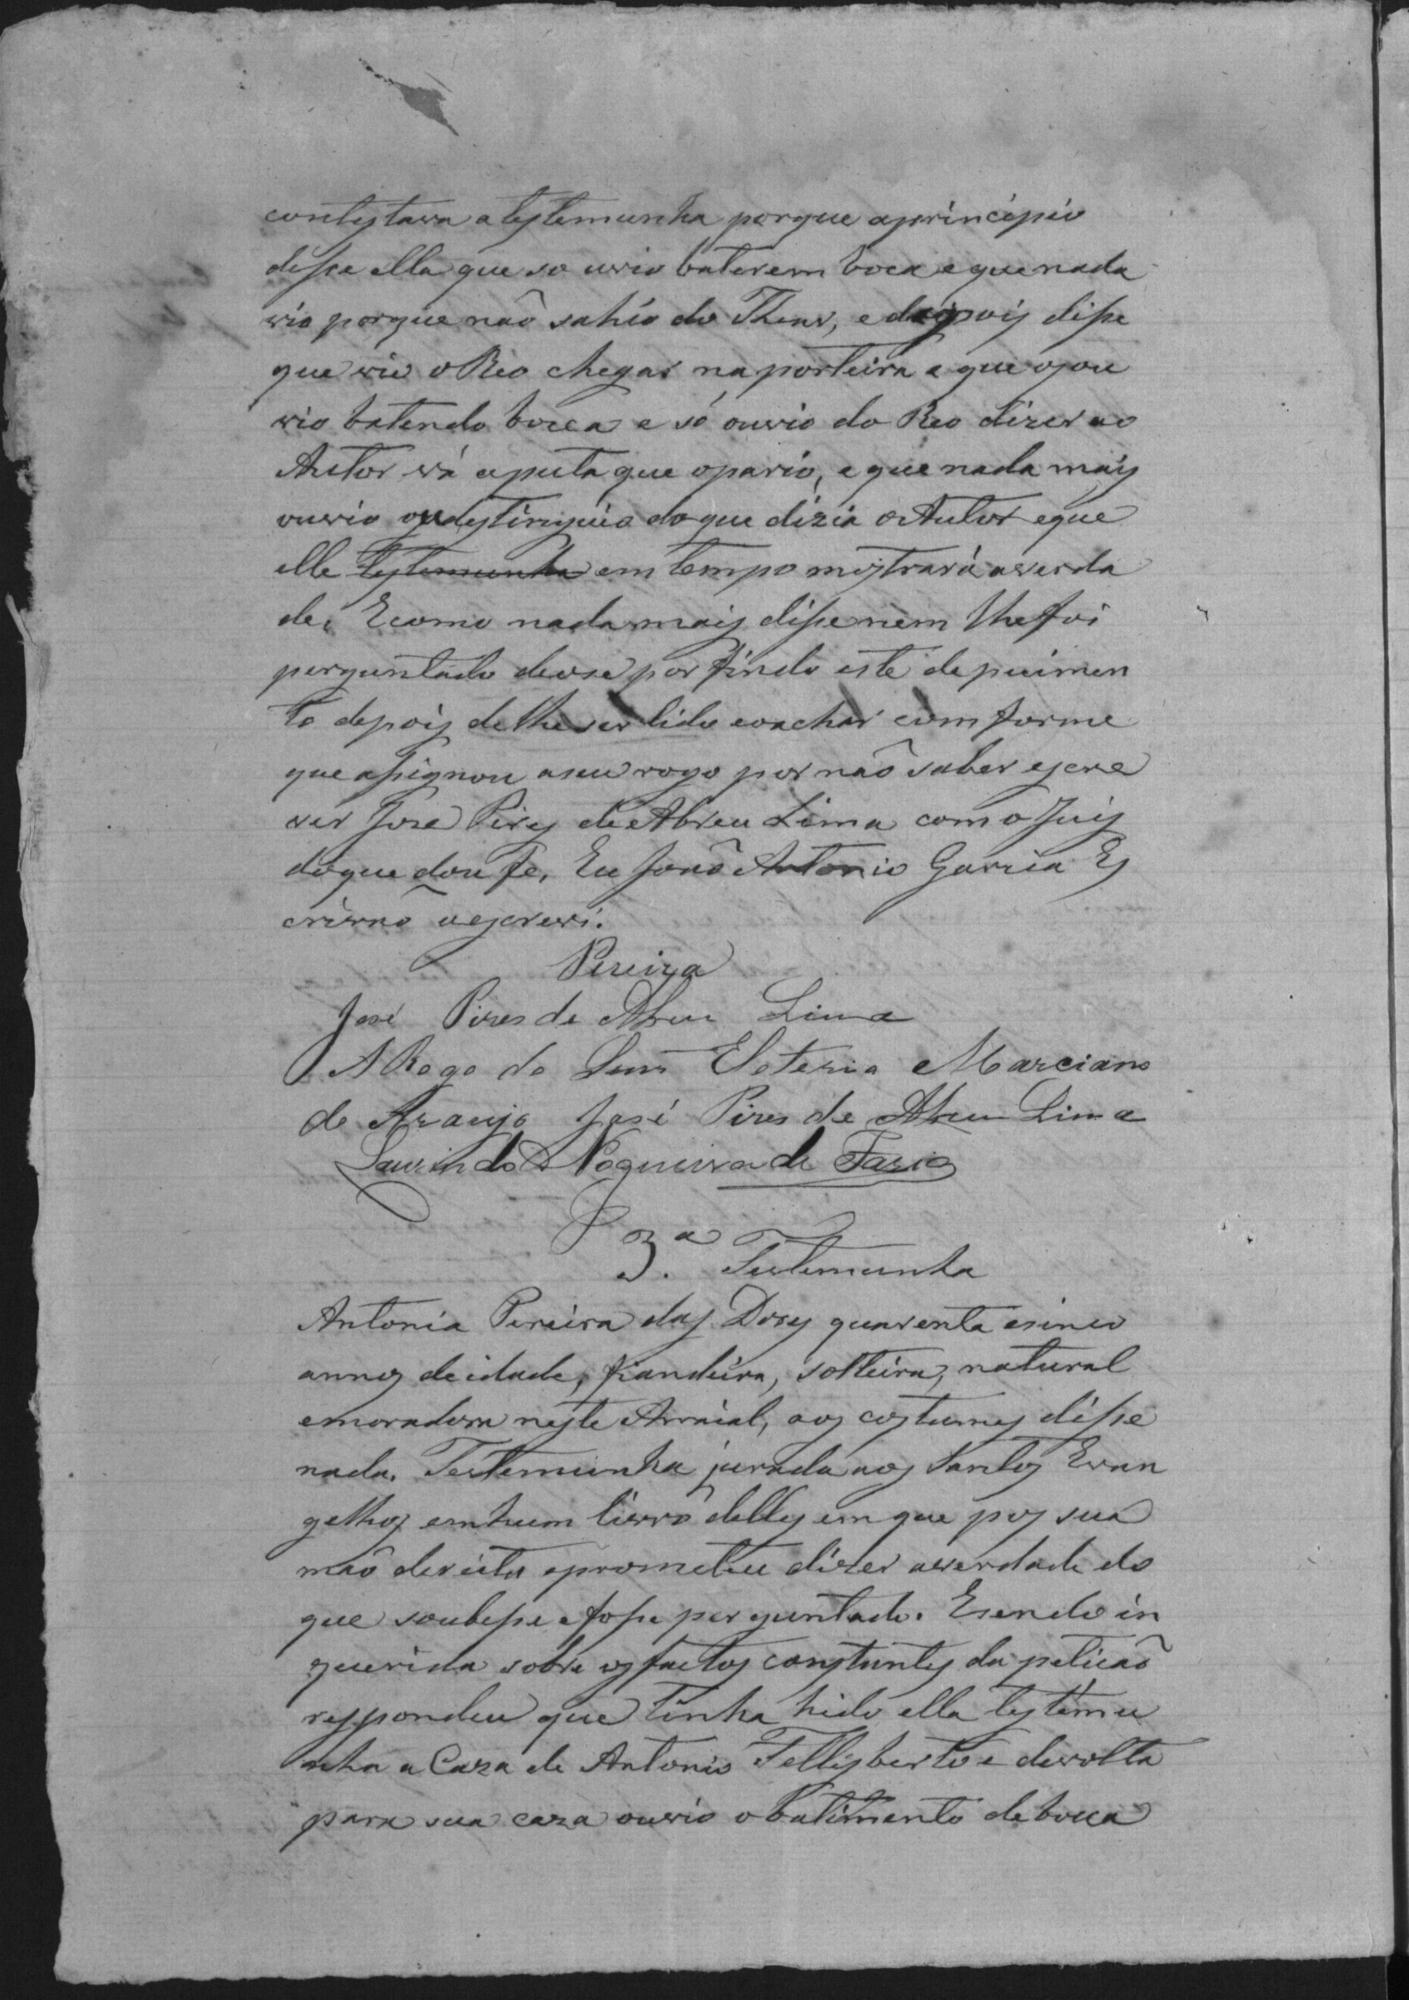 contestava a testemunha porque aprincipio
disse ella que so uvio baterem boca e que nada
vio porque naõ sahio do Thear, e depois disse
que vio o Reo chegar na porteira e que os ou
vio batendo bocca e só ouvio do Reo dizer ao
Autor vá a puta que o pario, e que nada mais
ouvio destinguio do que dizia o Autor e que
elle testemunha em tempo mostrará a verda
de. E como nada mais disse nem lhe foi
perguntado deuse por findo este depuimen
to depois de lhe ser lido e o achar comforme
que assignou a seu rogo por naõ saber escre
ver Jose Pires de Abreu Lima com o Juis
do que dou fe. Eu Joaõ Antonio Garcia Es
crivaõ o escrevi.
Pereira
José Pires de Abreu Lima
A Rogo de Eloteria Marciano
de Araujo José Pires de Abreu Lima
Laurindo Nogueira de Faria
3.ª Testemunha
Antonia Pereira das Dores quarenta e sinco
annos de idade, fiandeira, solteira, natural
e moradora neste Arraial, aos costumes disse
nada. Testemunha jurada aos Santos Evan
gelhos em hum livro delles em que pos sua
maõ dereita e prometeu dizer a verdade do
que soubesse e fosse perguntado. E sendo in
querida sobre os factos constantes da peticaõ
respondeu que tinha hido ella testemu
nha a Caza de Antonio Fellisberto e de volta
para sua caza ouvio o batimento de bocca